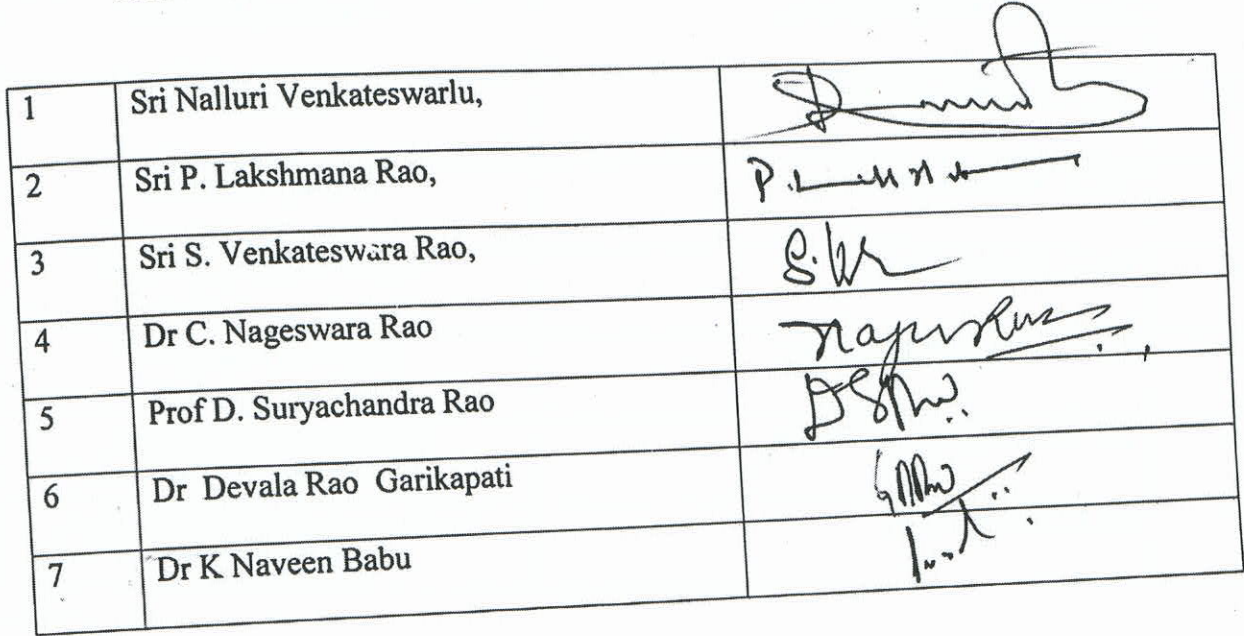 1 Sri Nalluri Venkateswarlu,
2 Sri P. Lakshmana Rao, P.
3 Sri S. Venkateswara Rao, S.
4 Dr C. Nageswara Rao
5 Prof D. Suryachandra Rao
6 Dr Devala Rao Garikapati
7 Dr K Naveen Babu